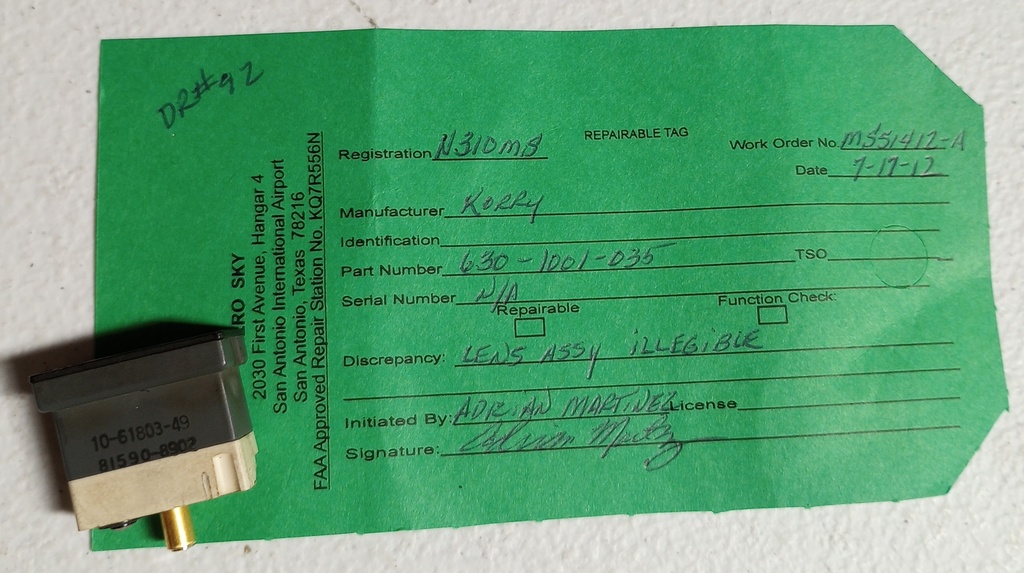 DR#92
REPAIRABLE TAG
Registration N310MB
Work Order No. MSS1412-A
Date 7-17-12
Manufacturer KORRY
Identification
Part Number 630-1001-035 TSO
Serial Number N/A
Repairable Function Check:
Discrepancy: LENS ASSY ILLEGIBLE
Initiated By: ADRIAN MARTINEZ License
Signature: Adrian Martz
RO SKY
2030 First Avenue, Hangar 4
San Antonio International Airport
San Antonio, Texas 78216
FAA Approved Repair Station No. KQ7R556N
10-61803-49
81590-8902